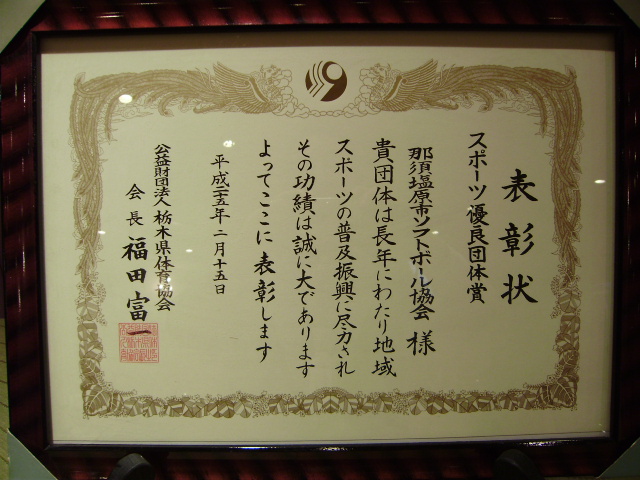 表彰状
スポーツ優良団体賞
那須塩原市ソフトボール協会 様
貴団体は長年にわたり地域
スポーツの普及振興に尽力され
その功績は誠に大であります
よってここに表彰します
平成二十五年二月十五日
公益財団法人 栃木県体育協会
会長 福田富一